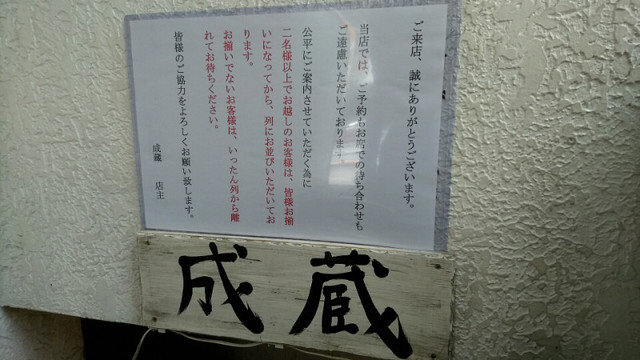 ご来店、誠にありがとうございます。
当店では、ご予約もお席での待ち合わせも
ご遠慮いただいております。
公平にご案内させていただく為に
二名様以上でお越しのお客様は、皆様お揃
いになってから、列にお並びいただいてお
ります。
お揃いでないお客様は、いったん列から離
れてお待ちください。
皆様のご協力をよろしくお願い致します。
成蔵　店主
成蔵